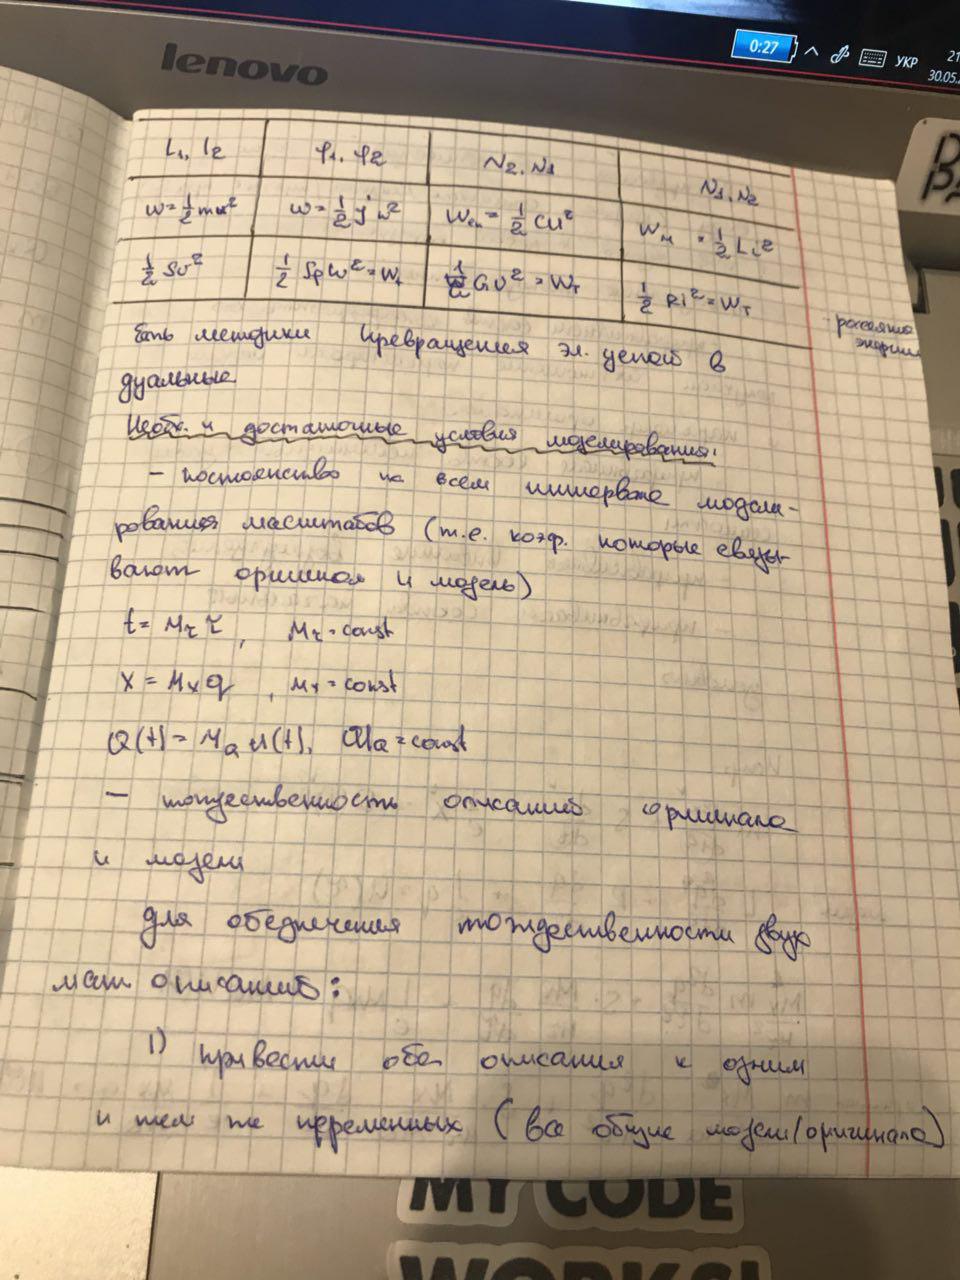 0:27
УКР
21
30.05.2
lenovo
L₁, L₂ φ₁, φ₂ N₂, N₁ N₁, N₂
W=½mu² W=½jω² Wэл=½CU² Wм=½Li²
½Sv² ½Spω²=Wт ½GU²=Wт ½Ri²=Wт
рассеяние
энергии
Есть методики превращения эл. цепей в
дуальные
Необх. и достаточные условия моделирования:
– постоянство на всем интервале модели-
рования масштабов (т.е. коэф. которые связы-
вают оригинал и модель)
t = Mτ τ, Mτ = const
x = Mx q, Mx = const
Q(t) = Ma u(t), Ma = const
– тождественность описаний оригинала
и модели
для обеспечения тождественности двух
мат описаний:
1) привести оба описания к одним
и тем же переменных (все общие модели/оригинала)
MY CODE
WORKS!